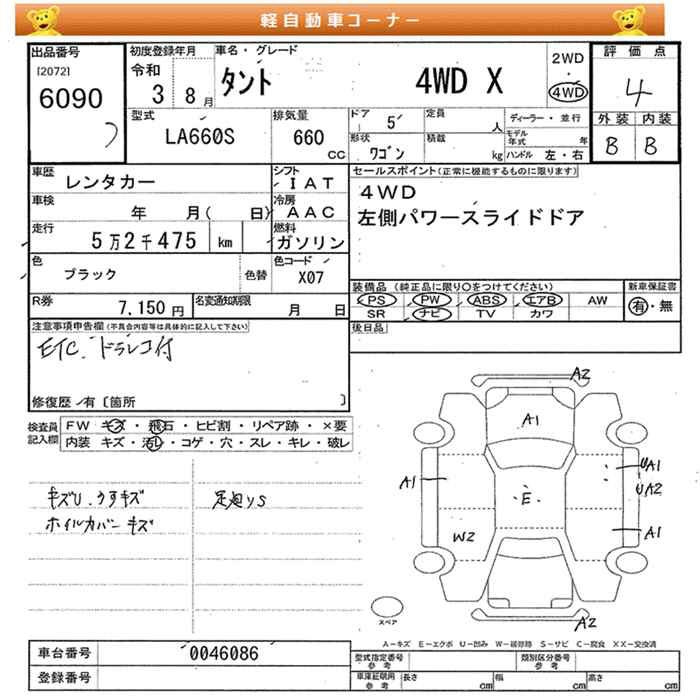 軽自動車コーナー
出品番号
[2072]
6090
初度登録年月
令和
3 8月
車名・グレード
タント 4WD X
2WD
・
4WD
評価点
4
外装 内装
B B
型式
LA660S
排気量
660
CC
ドア 5
定員 人
形状
ワゴン
積載 kg
ディーラー・並行
モデル年式 年
ハンドル 左・右
車歴 レンタカー
シフト
IAT
車検 年 月( 日)
冷房
AAC
走行
5万2千475 km
燃料
ガソリン
色
ブラック
色替
色コード
X07
R券
7,150円
名変通知期限
月 日
セールスポイント(正常に機能するものに限ります)
4WD
左側パワースライドドア
装備品(純正品に限り○をつけてください)
新車保証書
PS PW ABS エアB AW
有・無
SR ナビ TV カワ
後日品
注意事項申告欄(不具合内容等は具体的に記入して下さい)
ETC. ドラレコ付
修復歴 有〔箇所 〕
検査員
記入欄
FW キズ・飛石・ヒビ割・リペア跡・×要
内装 キズ・汚れ・コゲ・穴・スレ・キレ・破レ
キズU.ウすキズ
ホイルカバーキズ
足廻りS
A2
A1
A1
E
UA1
UA2
W2
A1
A2
スペア
A-キズ E-エクボ U-凹み W-補修跡 S-サビ C-腐食 XX-交換済
車台番号
0046086
登録番号
型式指定番号
参考
類別区分番号
参考
車庫証明用
参考
長さ cm
幅 cm
高さ cm